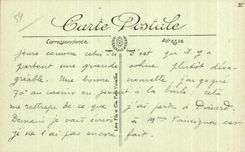 Carte Postale
Correspondance
Adresse
jours comme celui-ci c'est qu'il y a
partout une grande cohue plutôt désa-
gréable. Une bonne nouvelle, j'ai gagné
70f au casino en jouant à la boule, cela
me rattrape de ce que j'ai perdu à Dinard
Demain je vais
je ne l'ai pas encore fait.
Lévy Fils & Cie, Paris